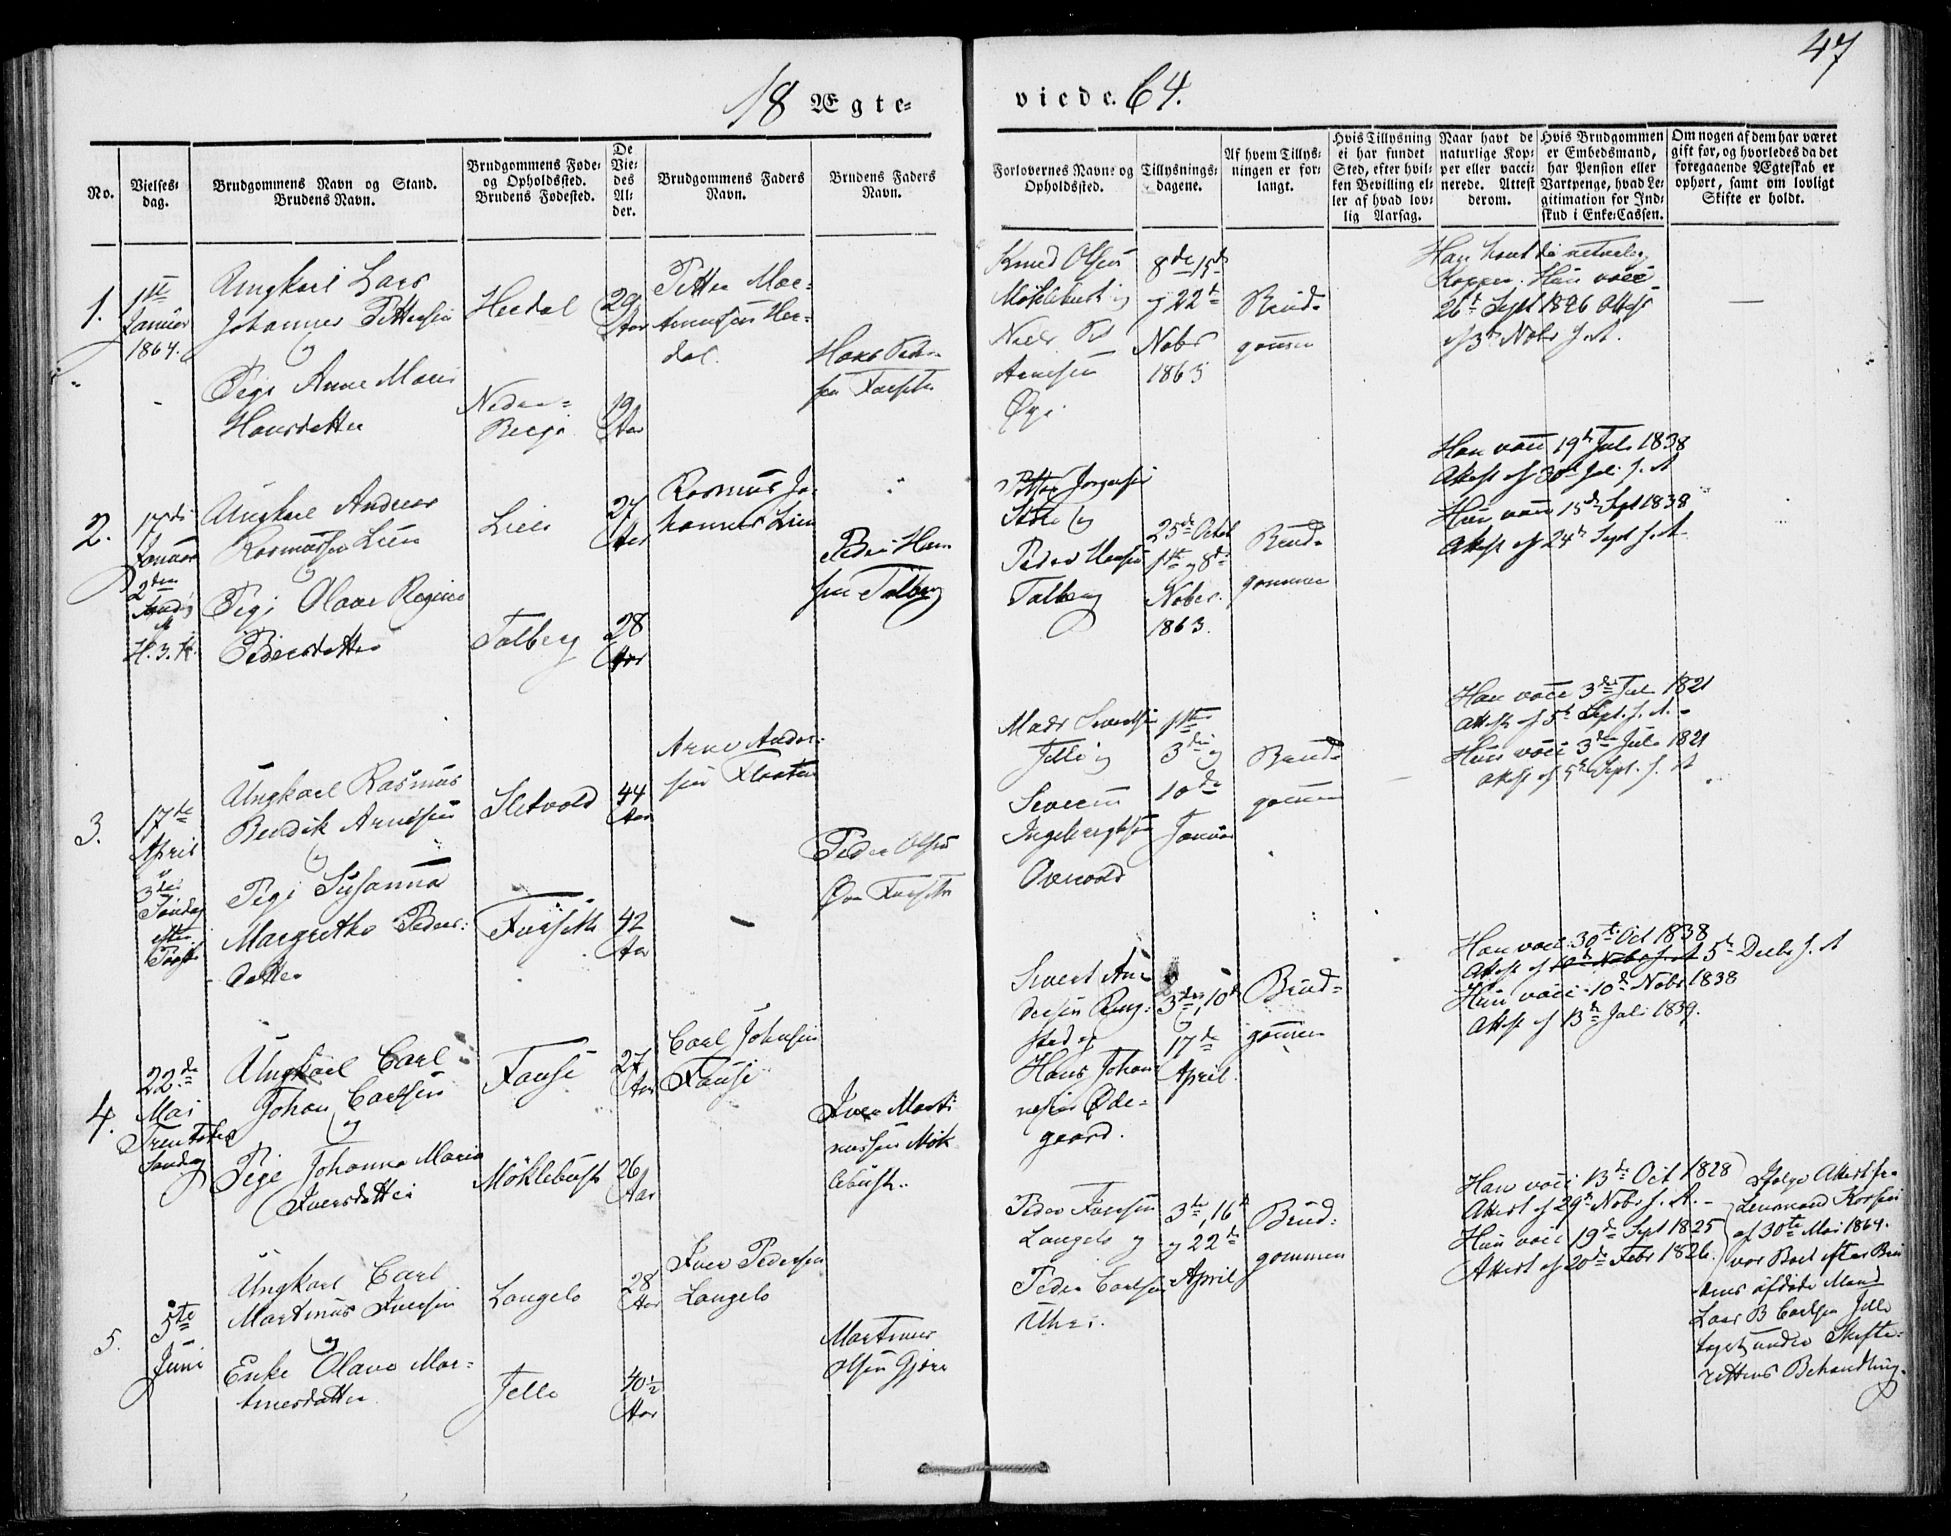 47
18 Ægte-
viede. 64.
No.
Vielses-
dag.
Brudgommens Navn og Stand.
Brudens Navn.
Brudgommens Føde-
og Opholdssted.
Brudens Fødested.
De
Vie-
des
Al-
der.
Brudgommens Faders
Navn.
Brudens Faders
Navn.
Forlovernes Navne og
Opholdssted.
Tillysnings-
dagene.
Af hvem Tillys-
ningen er for-
langt.
Hvis Tillysning
ei har fundet
Sted, efter hvil-
ken Bevilling el-
ler af hvad lov-
lig Aarsag.
Naar havt de
naturlige Kop-
per eller vacci-
nerede. Attest
derom.
Hvis Brudgommen
er Embedsmand,
har Pension eller
Vartpenge, hvad Le-
gitimation for Ind-
skud i Enke-Cassen.
Om nogen af dem har været
gift før, og hvorledes da det
foregaaende Ægteskab er
ophørt, samt om lovligt
Skifte er holdt.
1.
1ste
Januar
1864.
Ungkarl Lars
Johannes Pettersen
og
Pige Anne Marie
Hansdatter
Heedal
Nedre-
Berge
29
Aar
19
Aar
Petter Mar-
Hee-
dal.
Hans Peder-
sen
Knud Olsen
Möklebust og
Niels
Arnesen
Øye.
8de 15de
og 22de
Nobr
1863
Brud-
gommen
Han havt de naturlige
Kopper. Hun vacc
26de Sept 1846 Attest
af 3de Nobr s. A.
2.
17de
Januar
2den
Søndag
H. 3. K.
Ungkarl Andreas
Rasmussen Lien
og
Pige Olave Regine
Pedersdatter
Lien
Talberg
27
Aar
28
Aar
Rasmus Jo-
hannes Lien
Peder Han-
sen Talberg
Petter Jørgensen
Stole og
Peder Hansen
Talberg
25de Octob
1ste og 8de
Nobr.
1863.
Brud-
gommen
Han vacc 19de Juli 1838
Attest af 30te Juli s. A
Hun vacc 15de Sept 1838
Attest af 24de Sept s. A.
3.
17de
April
3die
Søndag
efter
Paaske
Ungkarl Rasmus
Bendik Arnesen
og
Pige Susanna
Margrethe Peders-
datter
Sletvold
44
Aar
42
Aar
Arne Ander-
sen Flaaten
Peder Olsen
Mads Sivertsen
Jelle og
Severin
Ingebrigtsen
Overvold
1ste
3die og
10de
Januar
Brud-
gommen
Han vacc 3die Juli 1821
Attest af 5te Sept. s. A.
Hun vacc 3die Juli 1821
Attest af 5te Sept. s. A
4.
22de
Mai
Trenitatis
Søndag
Ungkarl Carl
Johan Carlsen
og
Pige Johanne Marie
Iversdatter
Fause
Möklebust
27
Aar
26
Aar
Carl Johnsen
Fause
Iver Marti
nussen Mök
lebust.
Sivert An-
dersen Ring-
stad og
Hans Johan
nesen Øde-
gaard.
3die, 10de
og
17de
April.
Brud-
gommen
Han vacc. 30te Oct 1838
Attest af 10de Nobr s. A 5te Decbr s. A
Hun vacc. 10de Nobr 1838
Attest af 13de Juli 1839.
5.
5te
Juni
Ungkarl Carl
Martinus Iversen
og
Enke Olave Mar-
tinesdatter
Langelo
Jelle
28
Aar
40½
Aar
Iver Pedersen
Langelo
Martinus
Olsen Gjøre
Peder Iversen
Langelo og
Peder Carlsen
3die, 16de
og 22de
April
Brud-
gommen
Han vacc 13de Oct 1828
Attest af 29de Nobr s. A. -
Hun vacc 19de Sept 1825
Attest af 20de Febr 1826.
Ifølge Attest fra
Lensmand Korsen
af 30te Mai 1864.
var Boet efter Bru
dens afdøde Mand
Lars B Carlsen Jelle
taget under Skifte-
rettens Behandling.